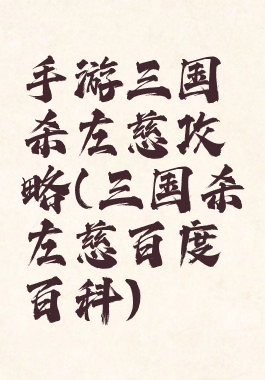 手游三国
杀左慈攻
略(三国杀
左慈百度
百科)